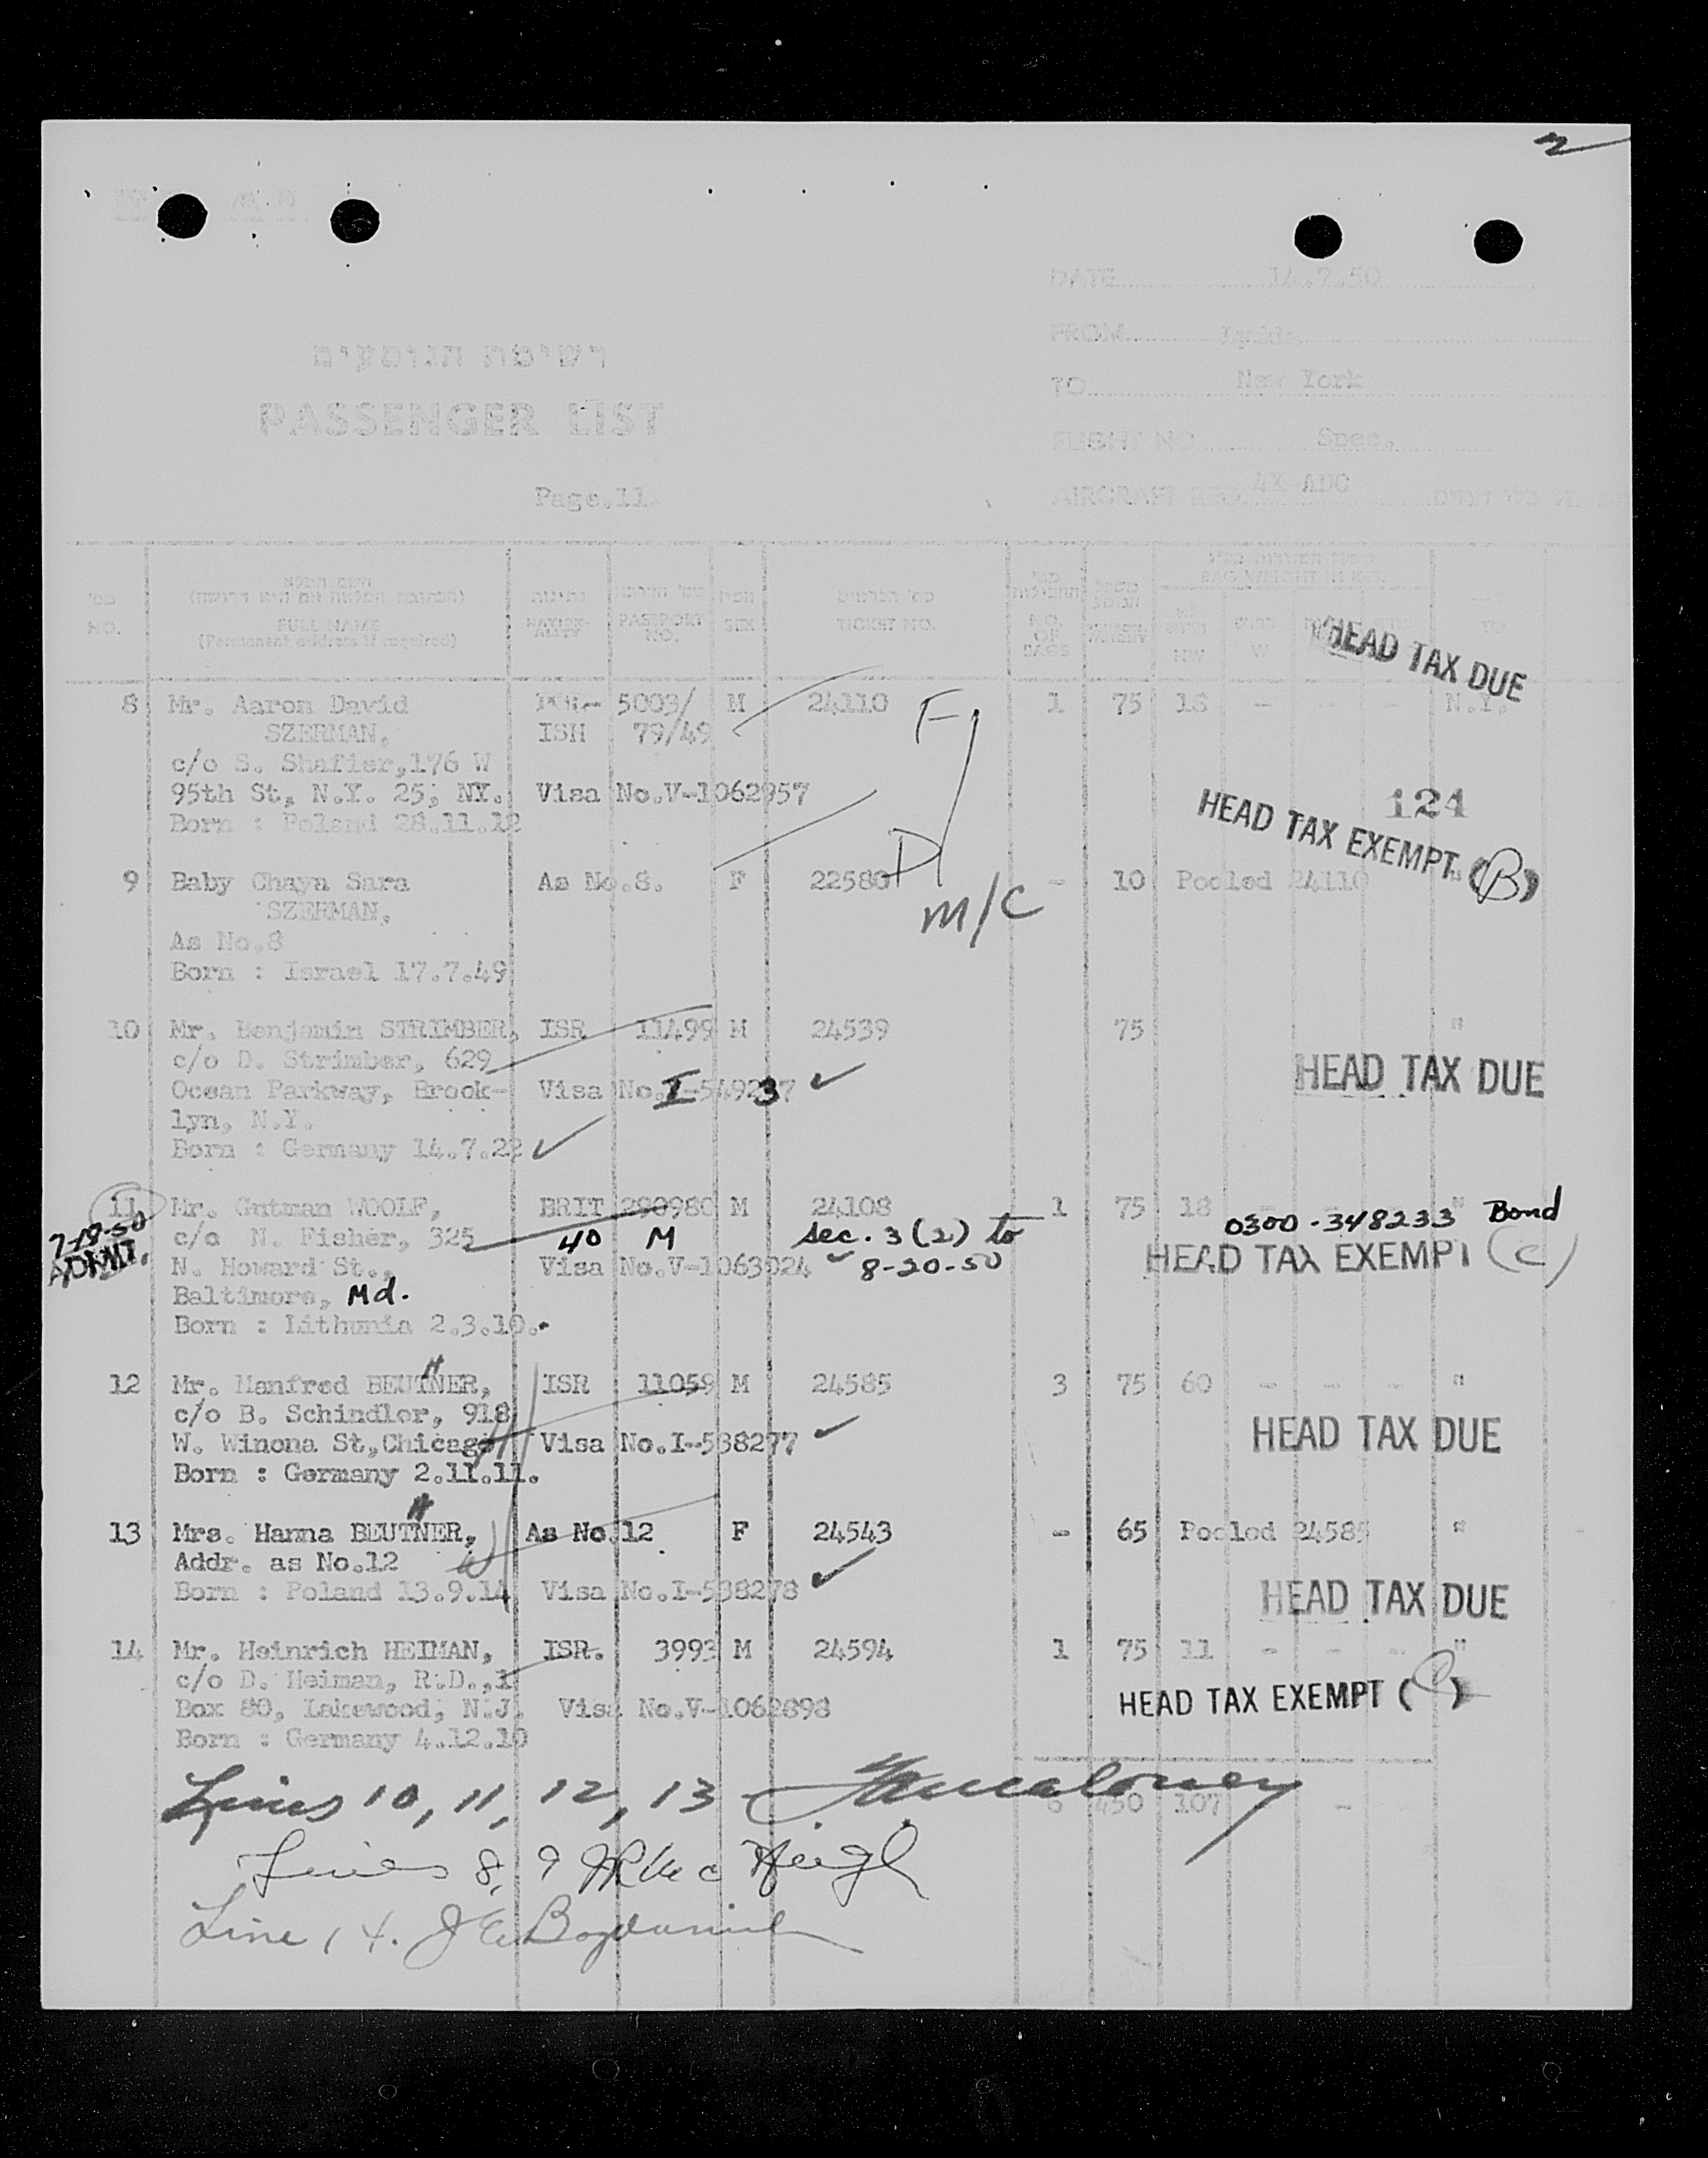 2
DATE 14.7.50
FROM Lydda
TO New York
רשימת הנוסעים
PASSENGER LIST
FLIGHT NO. Spec.
AIRCRAFT REG. 4X ADC
Page.11
מס'
NO.
FULL NAME
(Permanent address if required)
NATION-
ALITY
PASSPORT
NO.
SEX
TICKET NO.
NO.
OF
BAGS
BAG WEIGHT IN KGS.
W
HEAD TAX DUE
8 Mr. Aaron David 5003/ M 24110 1 75 18 - - - N.Y.
SZERMAN, ISH 79/49
c/o S. Shafier,176 W
95th St, N.Y. 25, NY. Visa No.V-1062957
Born : Poland 28.11.12
F/D
M/C
124
HEAD TAX EXEMPT (B)
9 Baby Chaya Sara As No.8. F 22580 - 10 Pooled 24110 "
SZERMAN,
As No.8
Born : Israel 17.7.49
10 Mr. Benjamin STRIMBER, ISR 11499 M 24539 75 "
c/o D. Strimber, 629
HEAD TAX DUE
Ocean Parkway, Brook- Visa No.I-549237
lyn, N.Y.
Born : Germany 14.7.22
11 Mr. Gutman WOOLF, BRIT 290980 M 24108 1 75 18 "
0300-348233 Bond
7-19-50
ADMIT.
c/o N. Fisher, 325 40 M Sec. 3(2) to
N. Howard St., Visa No.V-1063024 8-20-50
HEAD TAX EXEMPT (C)
Baltimore, Md.
Born : Lithunia 2.3.10.
12 Mr. Manfred BEUTNER, ISR 11059 M 24585 3 75 60 - - - "
c/o B. Schindler, 918
W. Winona St,Chicago Visa No.I-538277
HEAD TAX DUE
Born : Germany 2.11.11.
13 Mrs. Hanna BEUTNER, As No.12 F 24543 - 65 Pooled 24585 "
Addr. as No.12
Born : Poland 13.9.14 Visa No.I-538278
HEAD TAX DUE
14 Mr. Heinrich HEIMAN, ISR. 3993 M 24594 1 75 11 - - - "
c/o D. Heiman, R.D.,1
Box 80, Lakewood, N.J. Visa No.V-1062898
HEAD TAX EXEMPT (C)
Born : Germany 4.12.10
Lines 10, 11, 12, 13 Maloney
6 450 107 -
Lines 8, 9
Line 14.